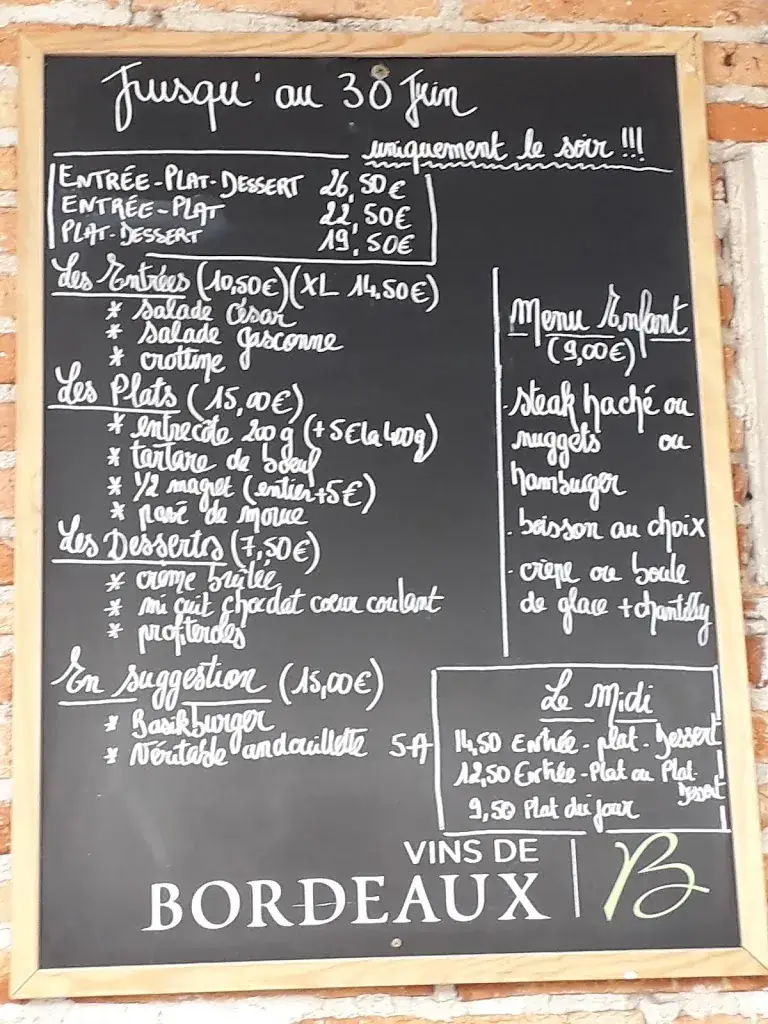 Jusqu'au 30 Juin
uniquement le soir !!!
ENTRÉE-PLAT-DESSERT 26,50€
ENTRÉE-PLAT 22,50€
PLAT-DESSERT 19,50€
Les Entrées (10,50€)(XL 14,50€)
* salade césar
* salade gasconne
* crottine
Les Plats (15,00€)
* entrecôte 200g (+5€ la 400g)
* tartare de boeuf
* 1/2 magret (entier+5€)
* pavé de morue
Les Desserts (7,50€)
* creme brûlée
* mi cuit chocolat coeur coulant
* profiteroles
En suggestion (15,00€)
* Basikburger
* Véritable andouillette 5A
Menu Enfant
(9,00€)
- steak haché ou
nuggets ou
hamburger
- boisson au choix
- crêpe ou boule
de glace + chantilly
Le Midi
14,50 Entrée-plat-Dessert
12,50 Entrée-Plat ou Plat-
Dessert
9,50 Plat du jour
VINS DE
BORDEAUX
B